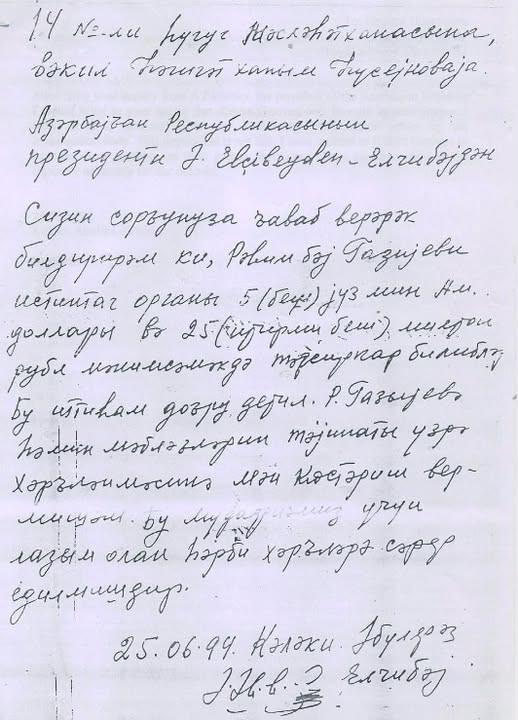 14 №-ли һүгуг мәсләһәтханасына,
вәкил Һәҹәр ханым Һүсејноваја.
Азәрбајҹан Республикасынын
президенти Ә. Elçibeyden - Елчибәјдән
Сизин сорғунуза ҹаваб верәрәк
билдирирәм ки, Рәһим бәј Газијеви
истинтаг органы 5 (беш) јүз мин Ам.
доллары вә 25 (ијирми беш) милјон
рубл мәнимсәмәкдә тәгсиркар билибләр
Бу иттиһам доғру дејил. Р. Газыјевә
һәмин мәбләғләрин тәјинаты үзрә
хәрҹләнмәсинә мән көстәриш вер-
мишәм. Бу үчүн
лазым олан һәрби хәрҹләрә сәрф
едилмишдир.
25.06.94. Кәләки. Әбүлфәз
Елчибәј